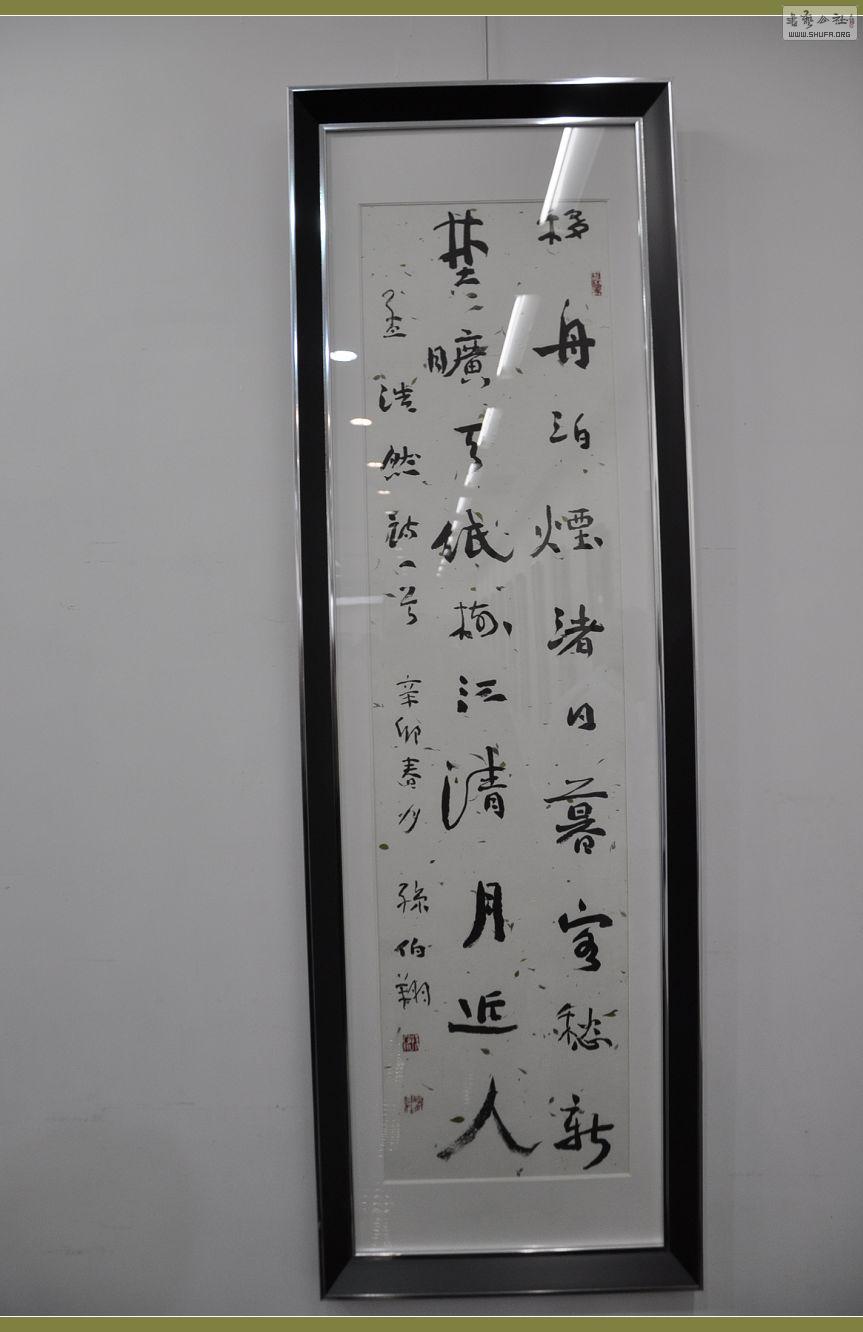 書藝公社
WWW.SHUFA.ORG
移舟泊煙渚日暮客愁新
埜曠天低樹江清月近人
孟浩然詩一首 辛卯春月 孫伯翔